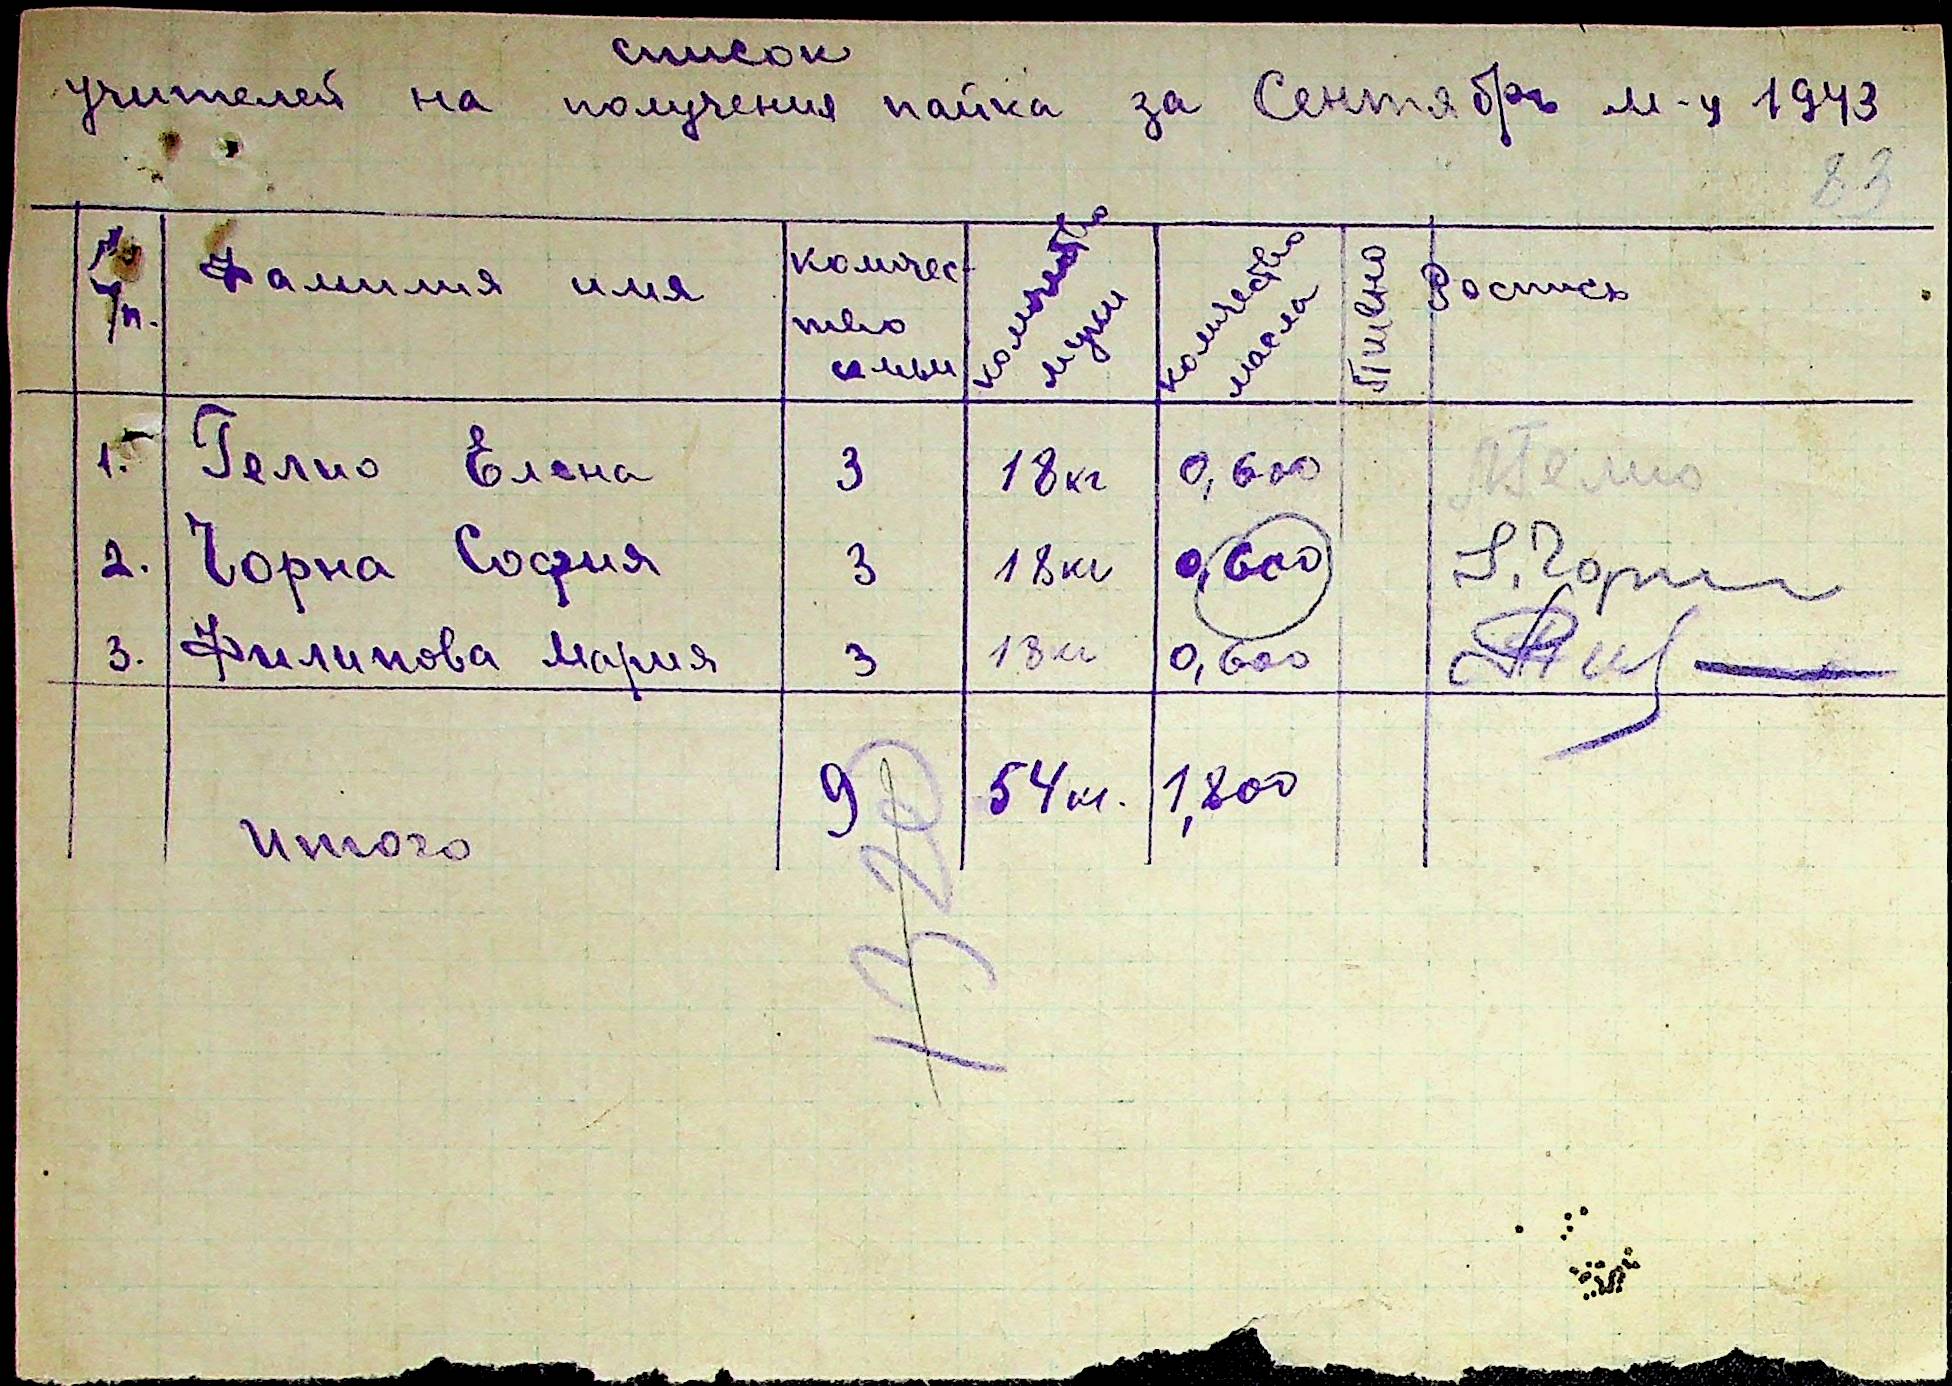 список
учителей на получения пайка за Сентябрь м-ц 1943
83
№ п/п. Фамилия имя количес-тво семьи количество муки количество масла Роспись
1. Гелио Елена 3 18кг 0,600 Гелио
2. Чорна София 3 18кг 0,600 S. Чорна
3. Филипова Мария 3 18кг 0,600
Итого 9 54кг. 1,800
1320